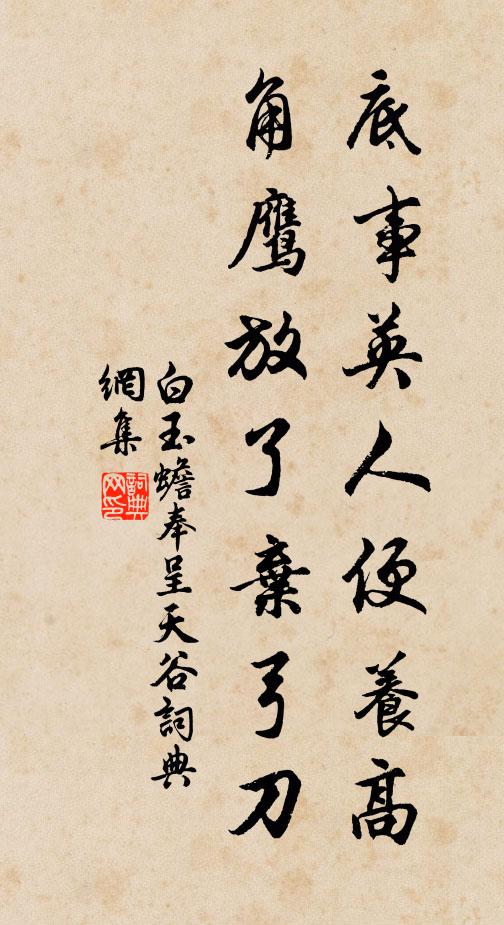 底事英人便養高
角鷹放了棄弓刀
白玉蟾奉呈天谷詞典
網集
詞典
网印